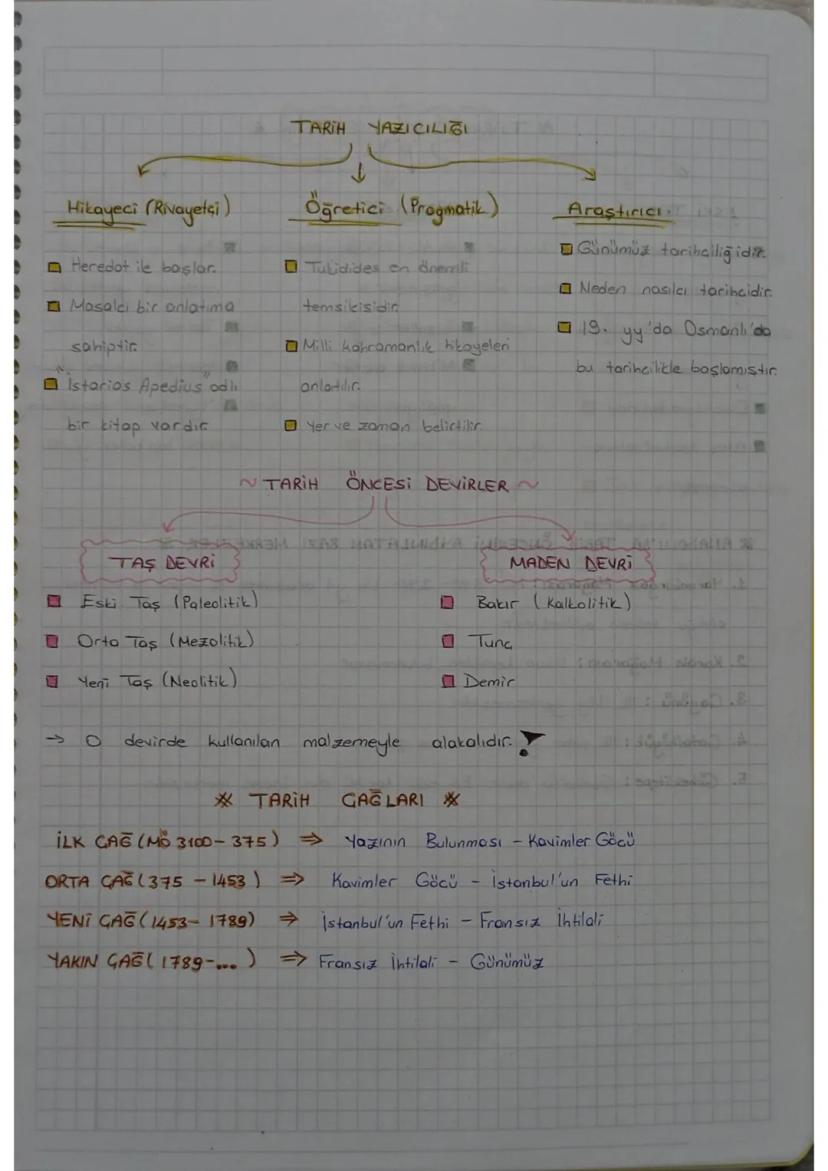 TARİH YAZICILIĞI
Hikayeci (Rivayetçi)
Heredot ile başlar.
Masalcı bir anlatıma
sahiptir.
"İstorios Apedius" adlı
bir kitap vardır
Öğretici (Pragmatik)
Tukidides en önemli
temsilcisidir.
Milli kahramanlık hkayeleri
anlatılır.
Yer ve zaman belirtilir.
Araştırıcı
Günümüz tarihciliğidir.
Neden nasılcı tarihcidir.
19. yy'da Osmanlı'da
bu tarihcilikle başlamıştır.
~ TARİH ÖNCESİ DEVİRLER ~
TAŞ DEVRİ
Eski Taş (Paleolitik)
Orta Taş (Mezolitik)
Yeni Taş (Neolitik)
MADEN DEVRİ
Bakır (Kalkolitik)
Tunç
Demir
→ O devirde kullanılan malzemeyle alakalıdır. !
※ TARİH ÇAĞLARI ※
İLK ÇAĞ (MÖ 3100 - 375) ⇒ Yazının Bulunması - Kavimler Göçü
ORTA ÇAĞ (375 - 1453) ⇒ Kavimler Göçü - İstanbul'un Fethi
YENİ ÇAĞ (1453 - 1789) ⇒ İstanbul'un Fethi - Fransız İhtilali
YAKIN ÇAĞ (1789-...) ⇒ Fransız İhtilali - Günümüz